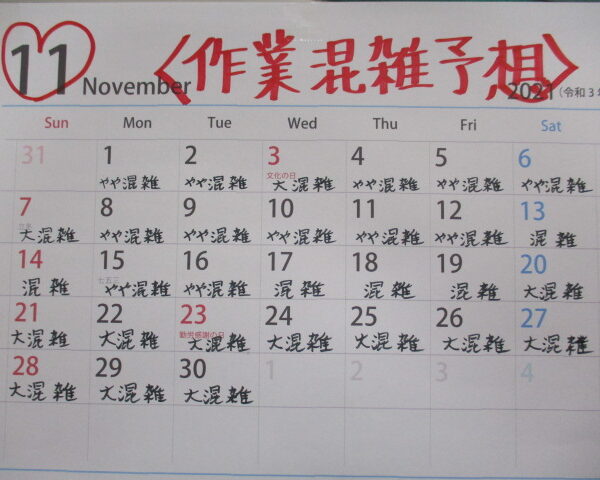 11 November 〈作業混雑予想〉 2021 (令和3年
Sun Mon Tue Wed Thu Fri Sat
31 1 2 3 4 5 6
文化の日
やや混雑 やや混雑 大混雑 やや混雑 やや混雑 やや混雑
7 8 9 10 11 12 13
大混雑 やや混雑 やや混雑 やや混雑 やや混雑 やや混雑 混雑
14 15 16 17 18 19 20
七五三
混雑 やや混雑 やや混雑 混雑 混雑 混雑 大混雑
21 22 23 24 25 26 27
勤労感謝の日
大混雑 大混雑 大混雑 大混雑 大混雑 大混雑 大混雑
28 29 30 1 2 3 4
大混雑 大混雑 大混雑